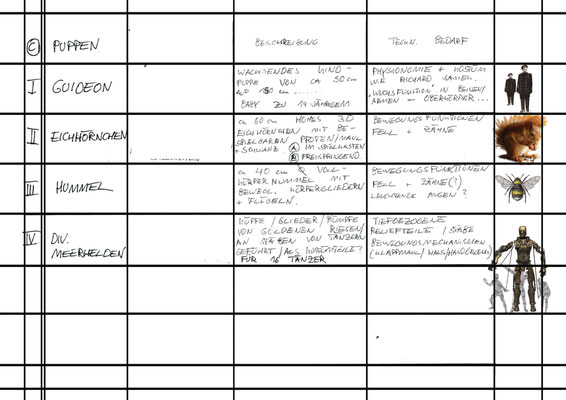 C PUPPEN BESCHREIBUNG TECHN. BEDARF
I GUIDEON
WACHSENDES KIND-
PUPPE VON CA 50cm
AUF
BABY ZU 14 JÄHRIGEM
PHYSIOGNOMIE + KOSTÜM
WIE RICHARD
WUCHSFUNKTION IN BEINEN/
ARMEN - OBERKÖRPER...
II EICHHÖRNCHEN
ca 60 cm HOHES 3D
EICHHÖRNCHEN MIT BE-
SPIELBAREN PFOTEN/MAUL
+ SCHWANZ. A IM SPIELKASTEN
B FREISPRINGEND.
BEWEGUNGSFUNKTIONEN
FELL + ZÄHNE
III HUMMEL
ca 40 cm VOLL-
KÖRPER HUMMEL MIT
BEWEGL. KÖRPERGLIEDERN
+ FLÜGELN.
BEWEGUNGSFUNKTIONEN
FELL + ZÄHNE(?)
LEUCHTENDE AUGEN?
IV DIV.
MEERHELDEN
KÖPFE/GLIEDER/RÜMPFE
VON GOLDENEN RIESEN/
AN STÄBEN VON TÄNZERN
GEFÜHRT/ALS
FÜR 16 TÄNZER
TIEFGEZOGENE
RELIEFTEILE/STÄBE
BEWEGUNGSMECHANISMEN
(KLAPPMAUL/HALS/HANDGELENK)